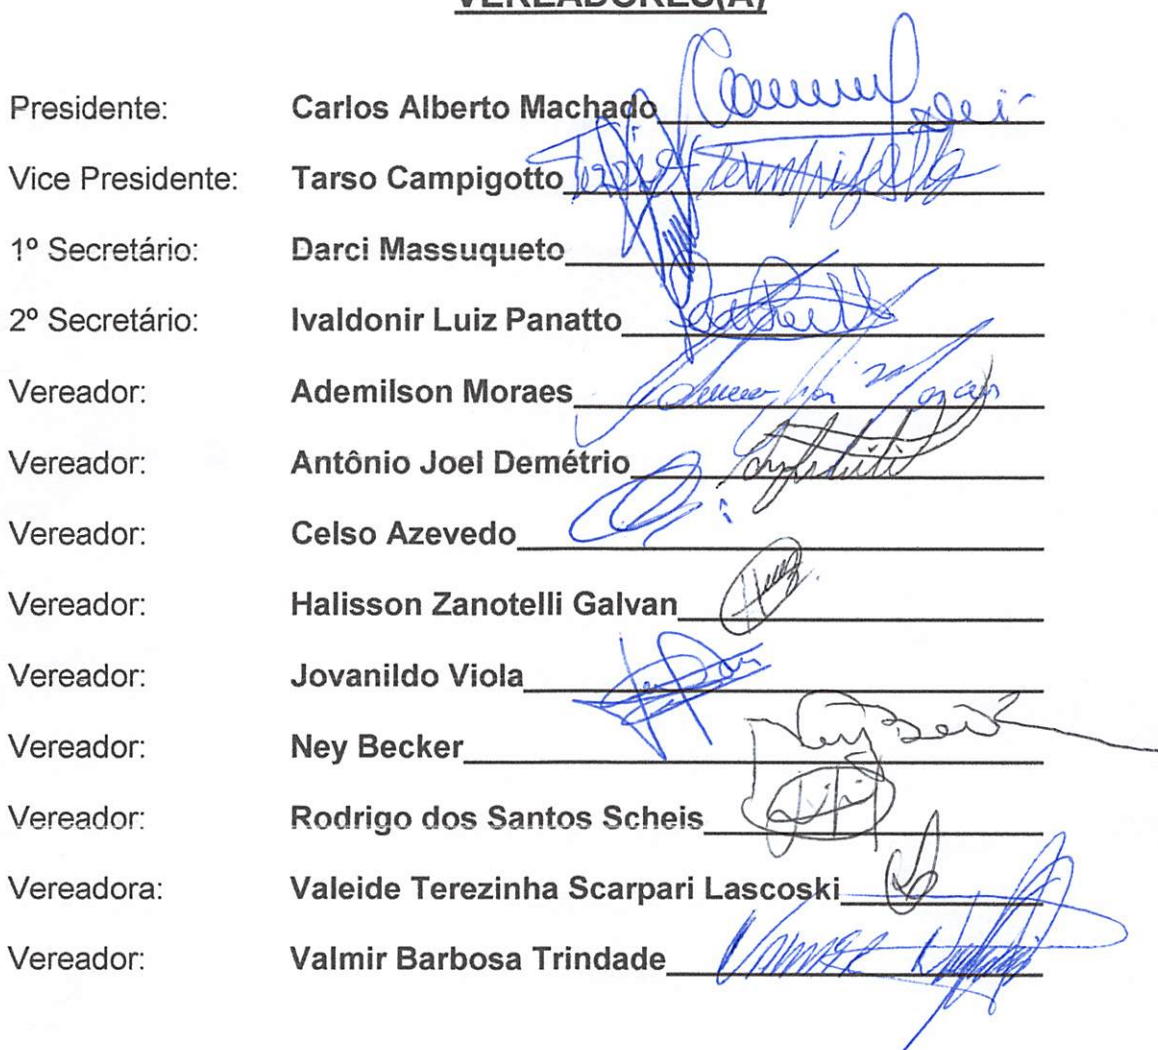 VEREADORES(A)
Presidente: Carlos Alberto Machado
Vice Presidente: Tarso Campigotto
1º Secretário: Darci Massuqueto
2º Secretário: Ivaldonir Luiz Panatto
Vereador: Ademilson Moraes
Vereador: Antônio Joel Demétrio
Vereador: Celso Azevedo
Vereador: Halisson Zanotelli Galvan
Vereador: Jovanildo Viola
Vereador: Ney Becker
Vereador: Rodrigo dos Santos Scheis
Vereadora: Valeide Terezinha Scarpari Lascoski
Vereador: Valmir Barbosa Trindade